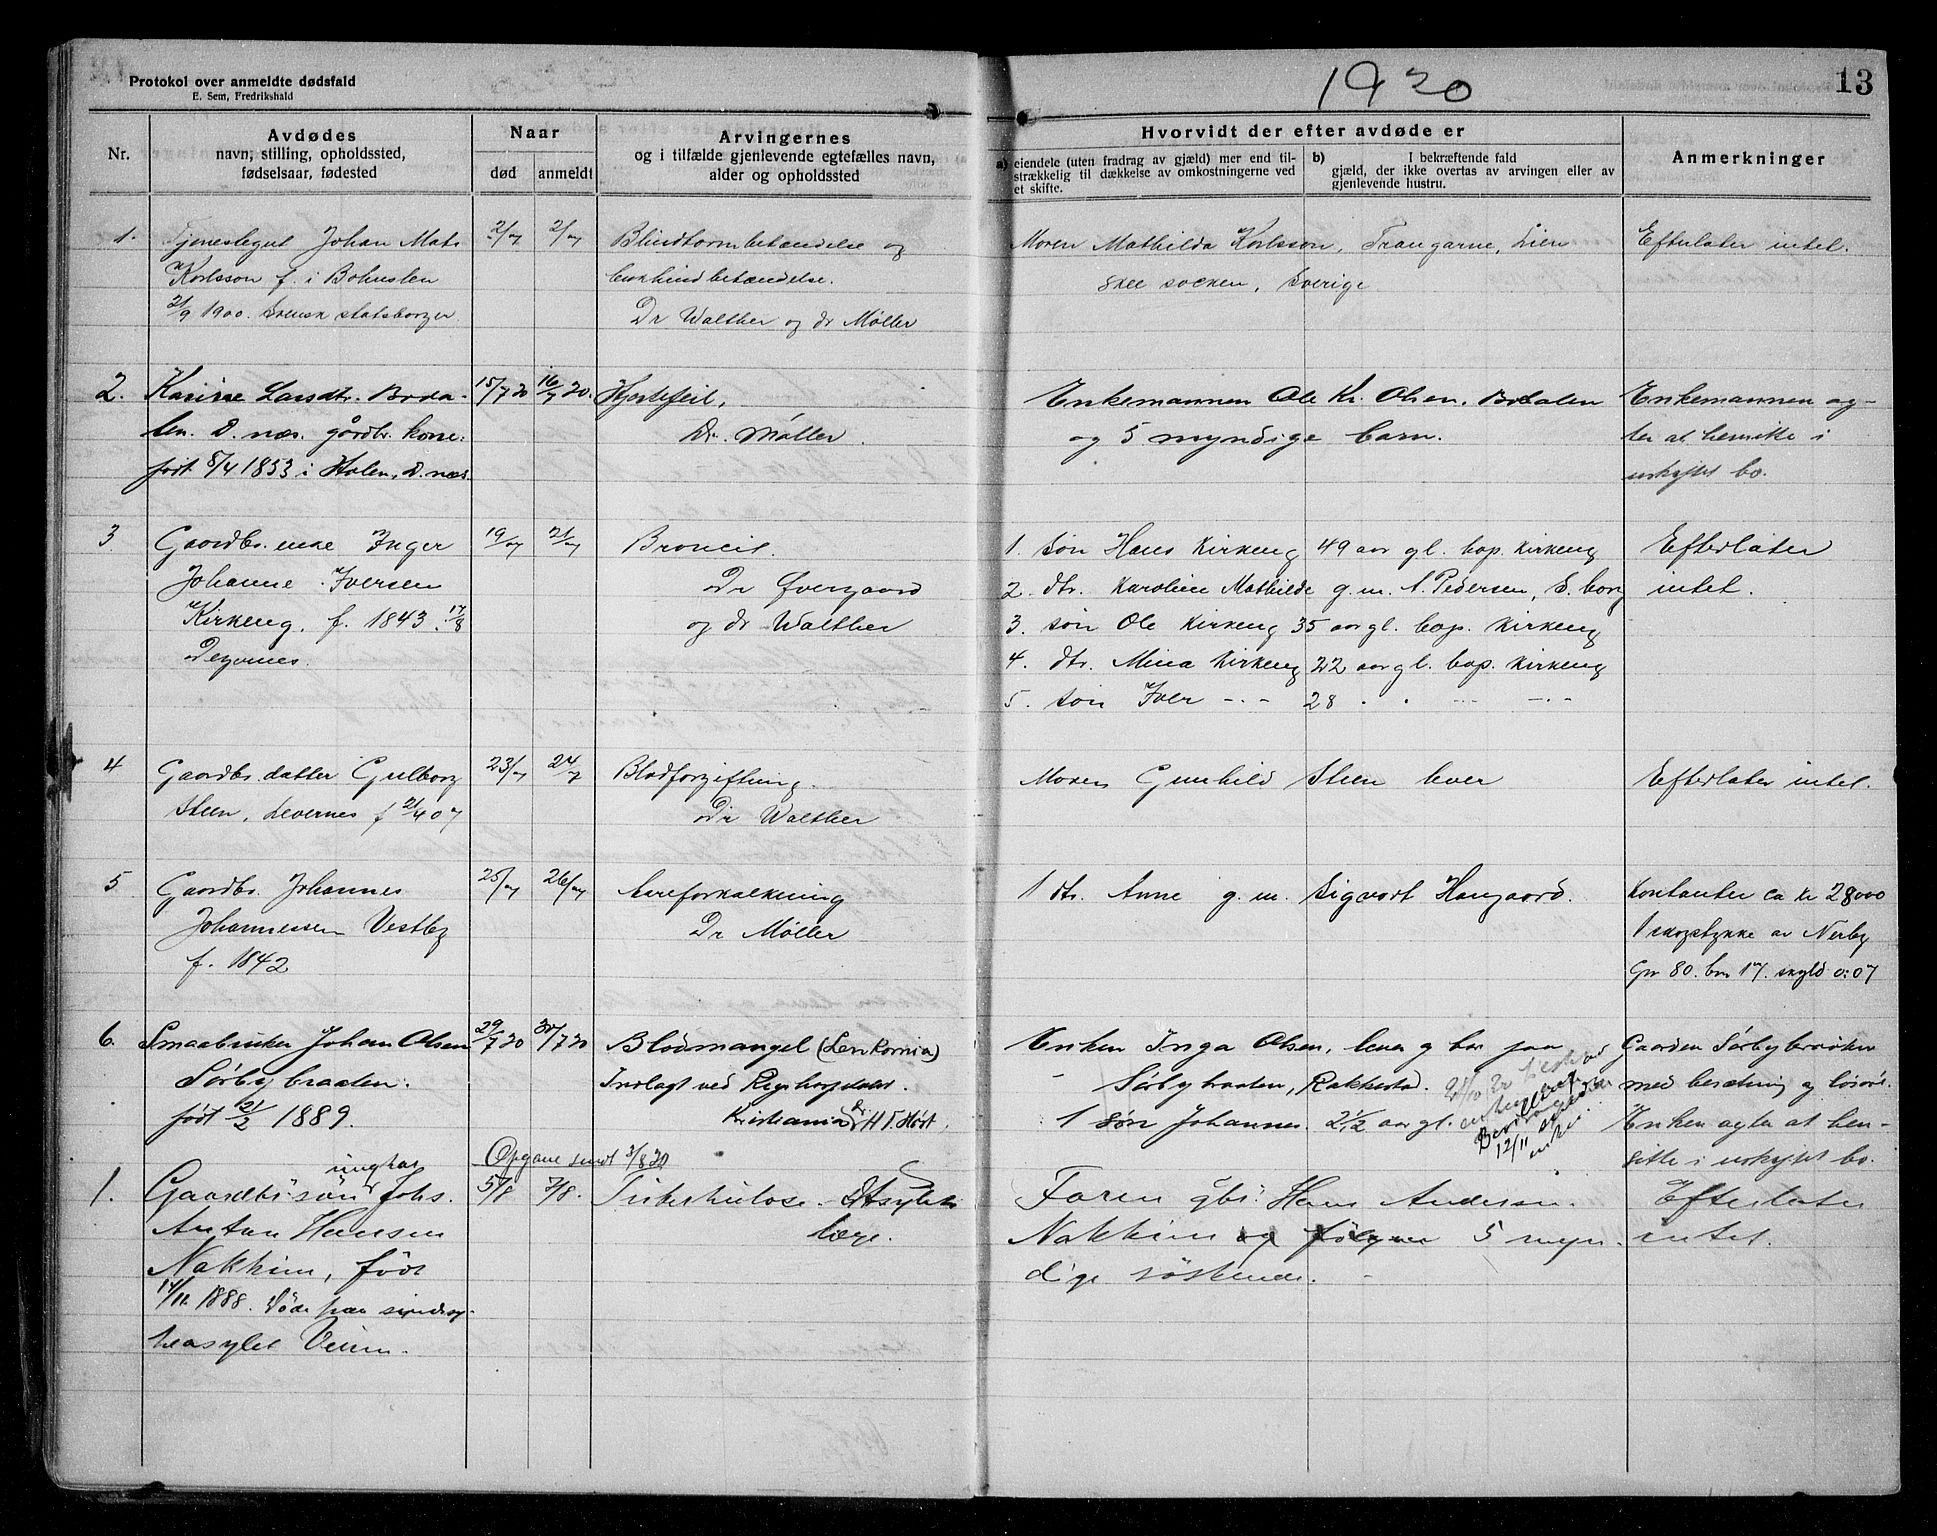 Protokol over anmeldte dødsfald
E. Sem, Fredrikshald
1920
13
Nr.
Avdødes
navn, stilling, opholdssted,
fødselsaar, fødested
Naar
død
anmeldt
Arvingernes
og i tilfælde gjenlevende egtefælles navn,
alder og opholdssted
Hvorvidt der efter avdøde er
a) eiendele (uten fradrag av gjæld) mer end til-
strækkelig til dækkelse av omkostningerne ved
et skifte.
b) I bekræftende fald
gjæld, der ikke overtas av arvingen eller av
gjenlevende hustru.
Anmerkninger
1. Tjenestegut Johan Mats
Korlsson f. i Bohuslen
21/9 1900. Svensk statsborger.
2/7
2/7
Blindtarmbetændelse og
bukhindbetændelse.
Dr Walther og dr Møller
Moren Mathilda Korlsson, Trangarne, Lien
skee socken, Sverige
Efterlater intet.
2. Karine Larsdtr. Boda-
len. D. næs. gårdbr. kone.
født 8/4 1853 i Holen, D. næs.
15/7 20
16/7 20.
Hjertefeil,
Dr. Møller.
Enkemannen Ole Kr. Olsen. Bodalen
og 5 myndige barn.
Enkemannen ag-
ter at hensitte i
uskiftet bo.
3 Gaardbr. enke Inger
Johanne Iversen
Kirkeng, f. 1843 17/8
Degernes.
19/7
21/7
Broncit.
Dr Øvergaard
og dr Walther
1. søn Hans Kirkeng 49 aar gl. bop. Kirkeng
2. dtr. Karoline Mathilde g. m. A. Pedersen, S. borg
3. søn Ole Kirkeng 35 aar gl. bop. Kirkeng
4. dtr. Mina Kirkeng 22 aar gl. bop. Kirkeng
5. søn Iver -.- 28 . . -.- -.-
Efterlater
intet.
4 Gaardbr. datter Gulborg
Steen, Degernes f 21/4 07
23/7
24/7
Blodforgiftning.
Dr Walther
Moren Gunhild Steen lever
Efterlater intet.
5 Gaardbr. Johannes
Johannessen Vestby
f. 1842
25/7
26/7
Aareforkalkning
Dr Møller
1 dtr. Anne g. m. Sigvart Haugaard.
Kontanter ca kr 28000
1 skogstykke av Nerby
Gnr 80. bnr 17. skyld 0:07
6. Smaabruker Johan Olsen
Sørbybraaten.
født 21/2 1889.
29/7 20
30/7 20
Blodmangel (Lenkornia)
Indlagt ved Rigshospitalet.
Kristiania Dr. H. T. Høst.
Enken Inga Olsen, lever og bor paa
Sørbybraaten, Rakkestad.
1 søn Johannes. 2 1/2 aar gl.
12/11
enke.
Gaarden Sørbybraaten
med besætning og løsøre.
Enken agter at hen-
sitte i uskiftet bo.
Opgave sendt 3/8 20
1. Gaardbr. søn ungkar Johs.
Anton Hansen
Nakkim, født
14/11 1888. Døde paa sindssy-
keasylet Veum.
5/8
7/8.
Tuberkulose. Asylets
læge.
Faren gbr. Hans Andersen
Nakkim og følgene 5 myn-
dige søskende.
Efterlater
intet.